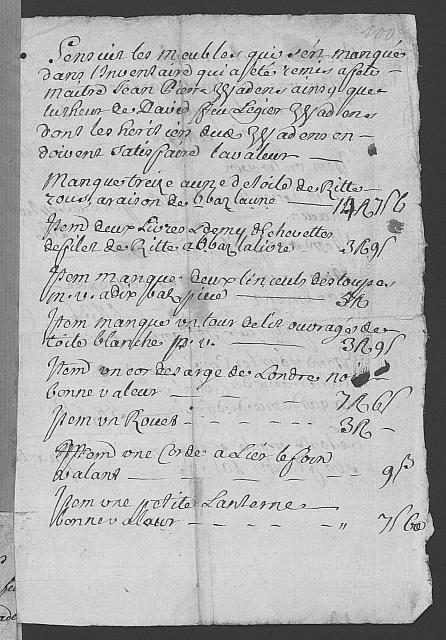 Sensuit les meubles qui sen manqué
dans linventaire qui a eté remis a feu
maitre Jean Pierre Wadens ainsy que
tutheur de David feu Legier Wadens
dont les heritiers dud. Wadens en
doivent satisfaire la valeur
Manque treize aune de toile de Ritte
rous a raison de bbaz laune 7 b
Item deux Livres & demy d'Echevettes
de filet de Ritte a bbaz la livre 3 R 9 s
Item manque deux linceuls destoupes
m. v. a dix baz piece 3 R
Item manque un tour de lit ouvragés de
toile blanche p. v. 3 R 9 s
Item un cor de sarge de Londre
bonne valeur 7 R 6 s
Item un Rouet 3 R
Item une Corde a Lier le foin
valant 9 s
Item une petite Lanterne
bonne valeur " 7 s